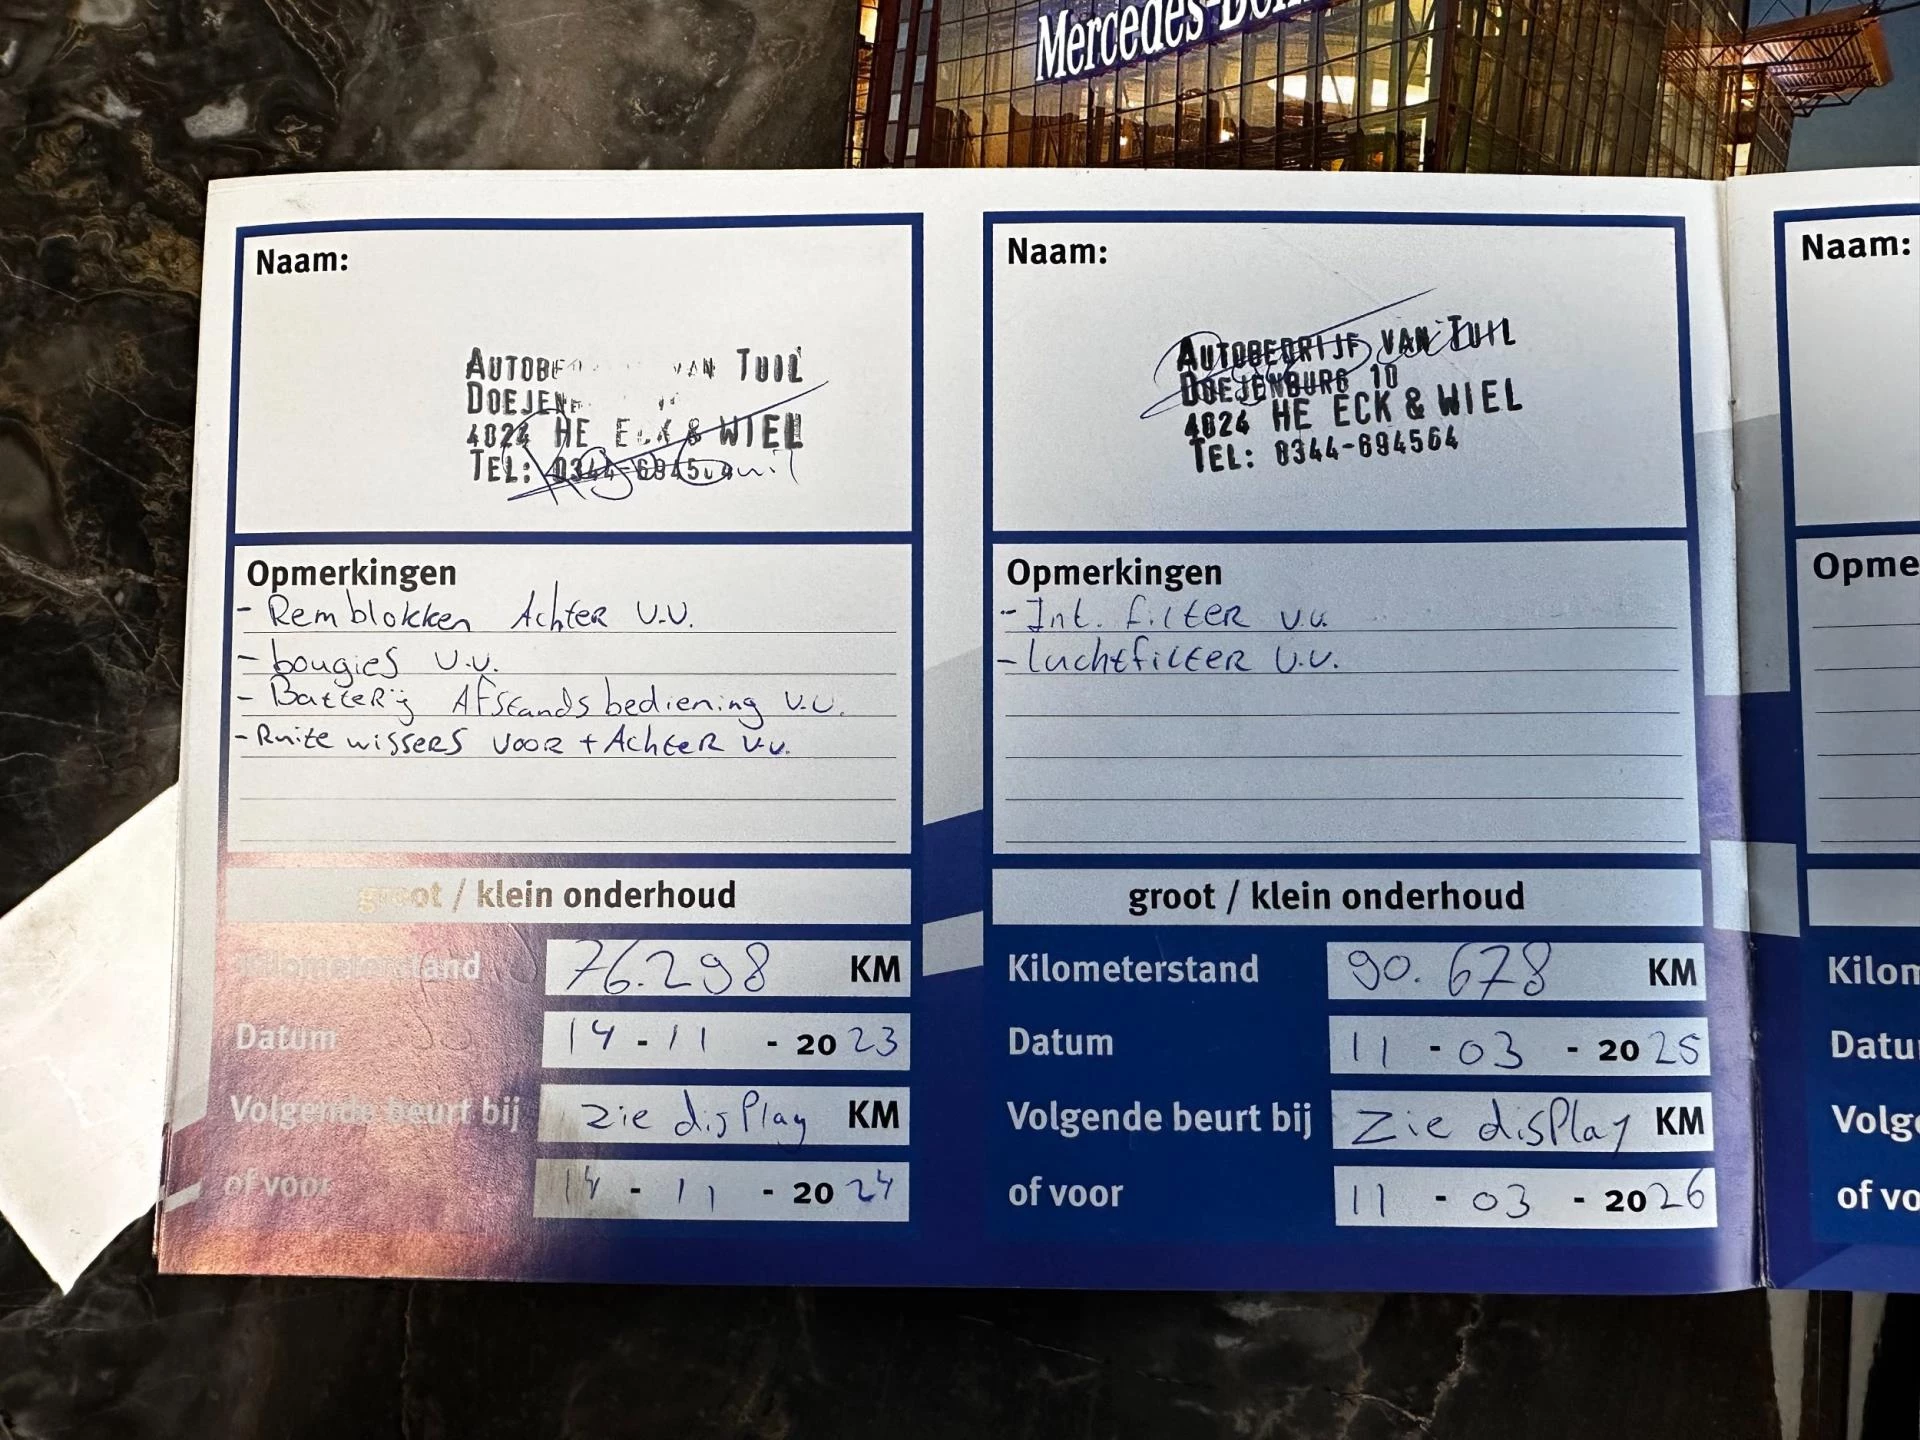 Mercedes-Ben
Naam:
AUTOBE VAN TUIL
DOEJEN
4024 HE ECK & WIEL
TEL: 0344-6945
Opmerkingen
- Remblokken Achter v.v.
- bougies v.v.
- Batterij Afstandsbediening v.v.
- Ruitewissers voor + Achter v.v.
groot / klein onderhoud
Kilometerstand 76.298 KM
Datum 14 - 11 - 2023
Volgende beurt bij zie display KM
of voor 14 - 11 - 2024
Naam:
AUTOBEDRIJF VAN TUIL
DOEJENBURG 10
4024 HE ECK & WIEL
TEL: 0344-694564
Opmerkingen
- Int. filter v.v.
- Luchtfilter v.v.
groot / klein onderhoud
Kilometerstand 90.678 KM
Datum 11 - 03 - 2025
Volgende beurt bij zie display KM
of voor 11 - 03 - 2026
Naam:
Opme
Kilom
Datu
Volge
of vo